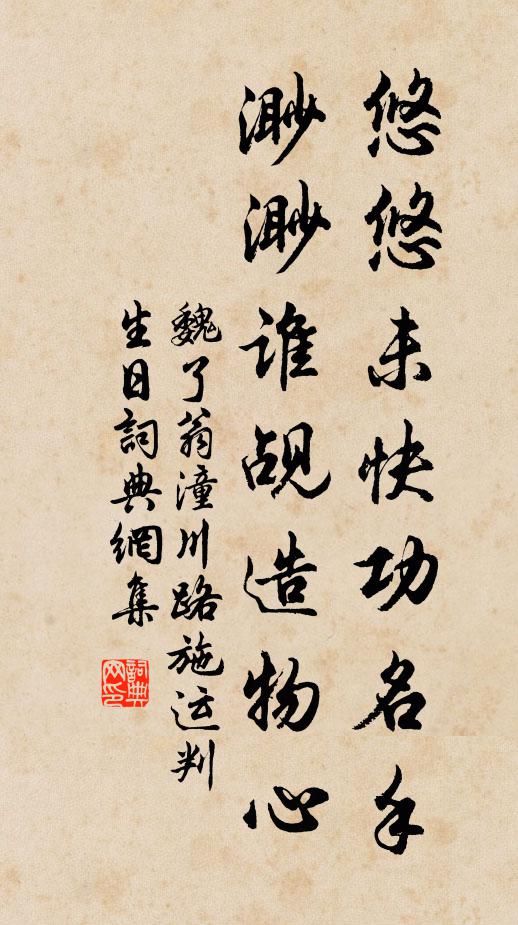 悠悠未快功名手
渺渺谁觇造物心
魏了翁潼川路施运判
生日詞典網集
詞典网印